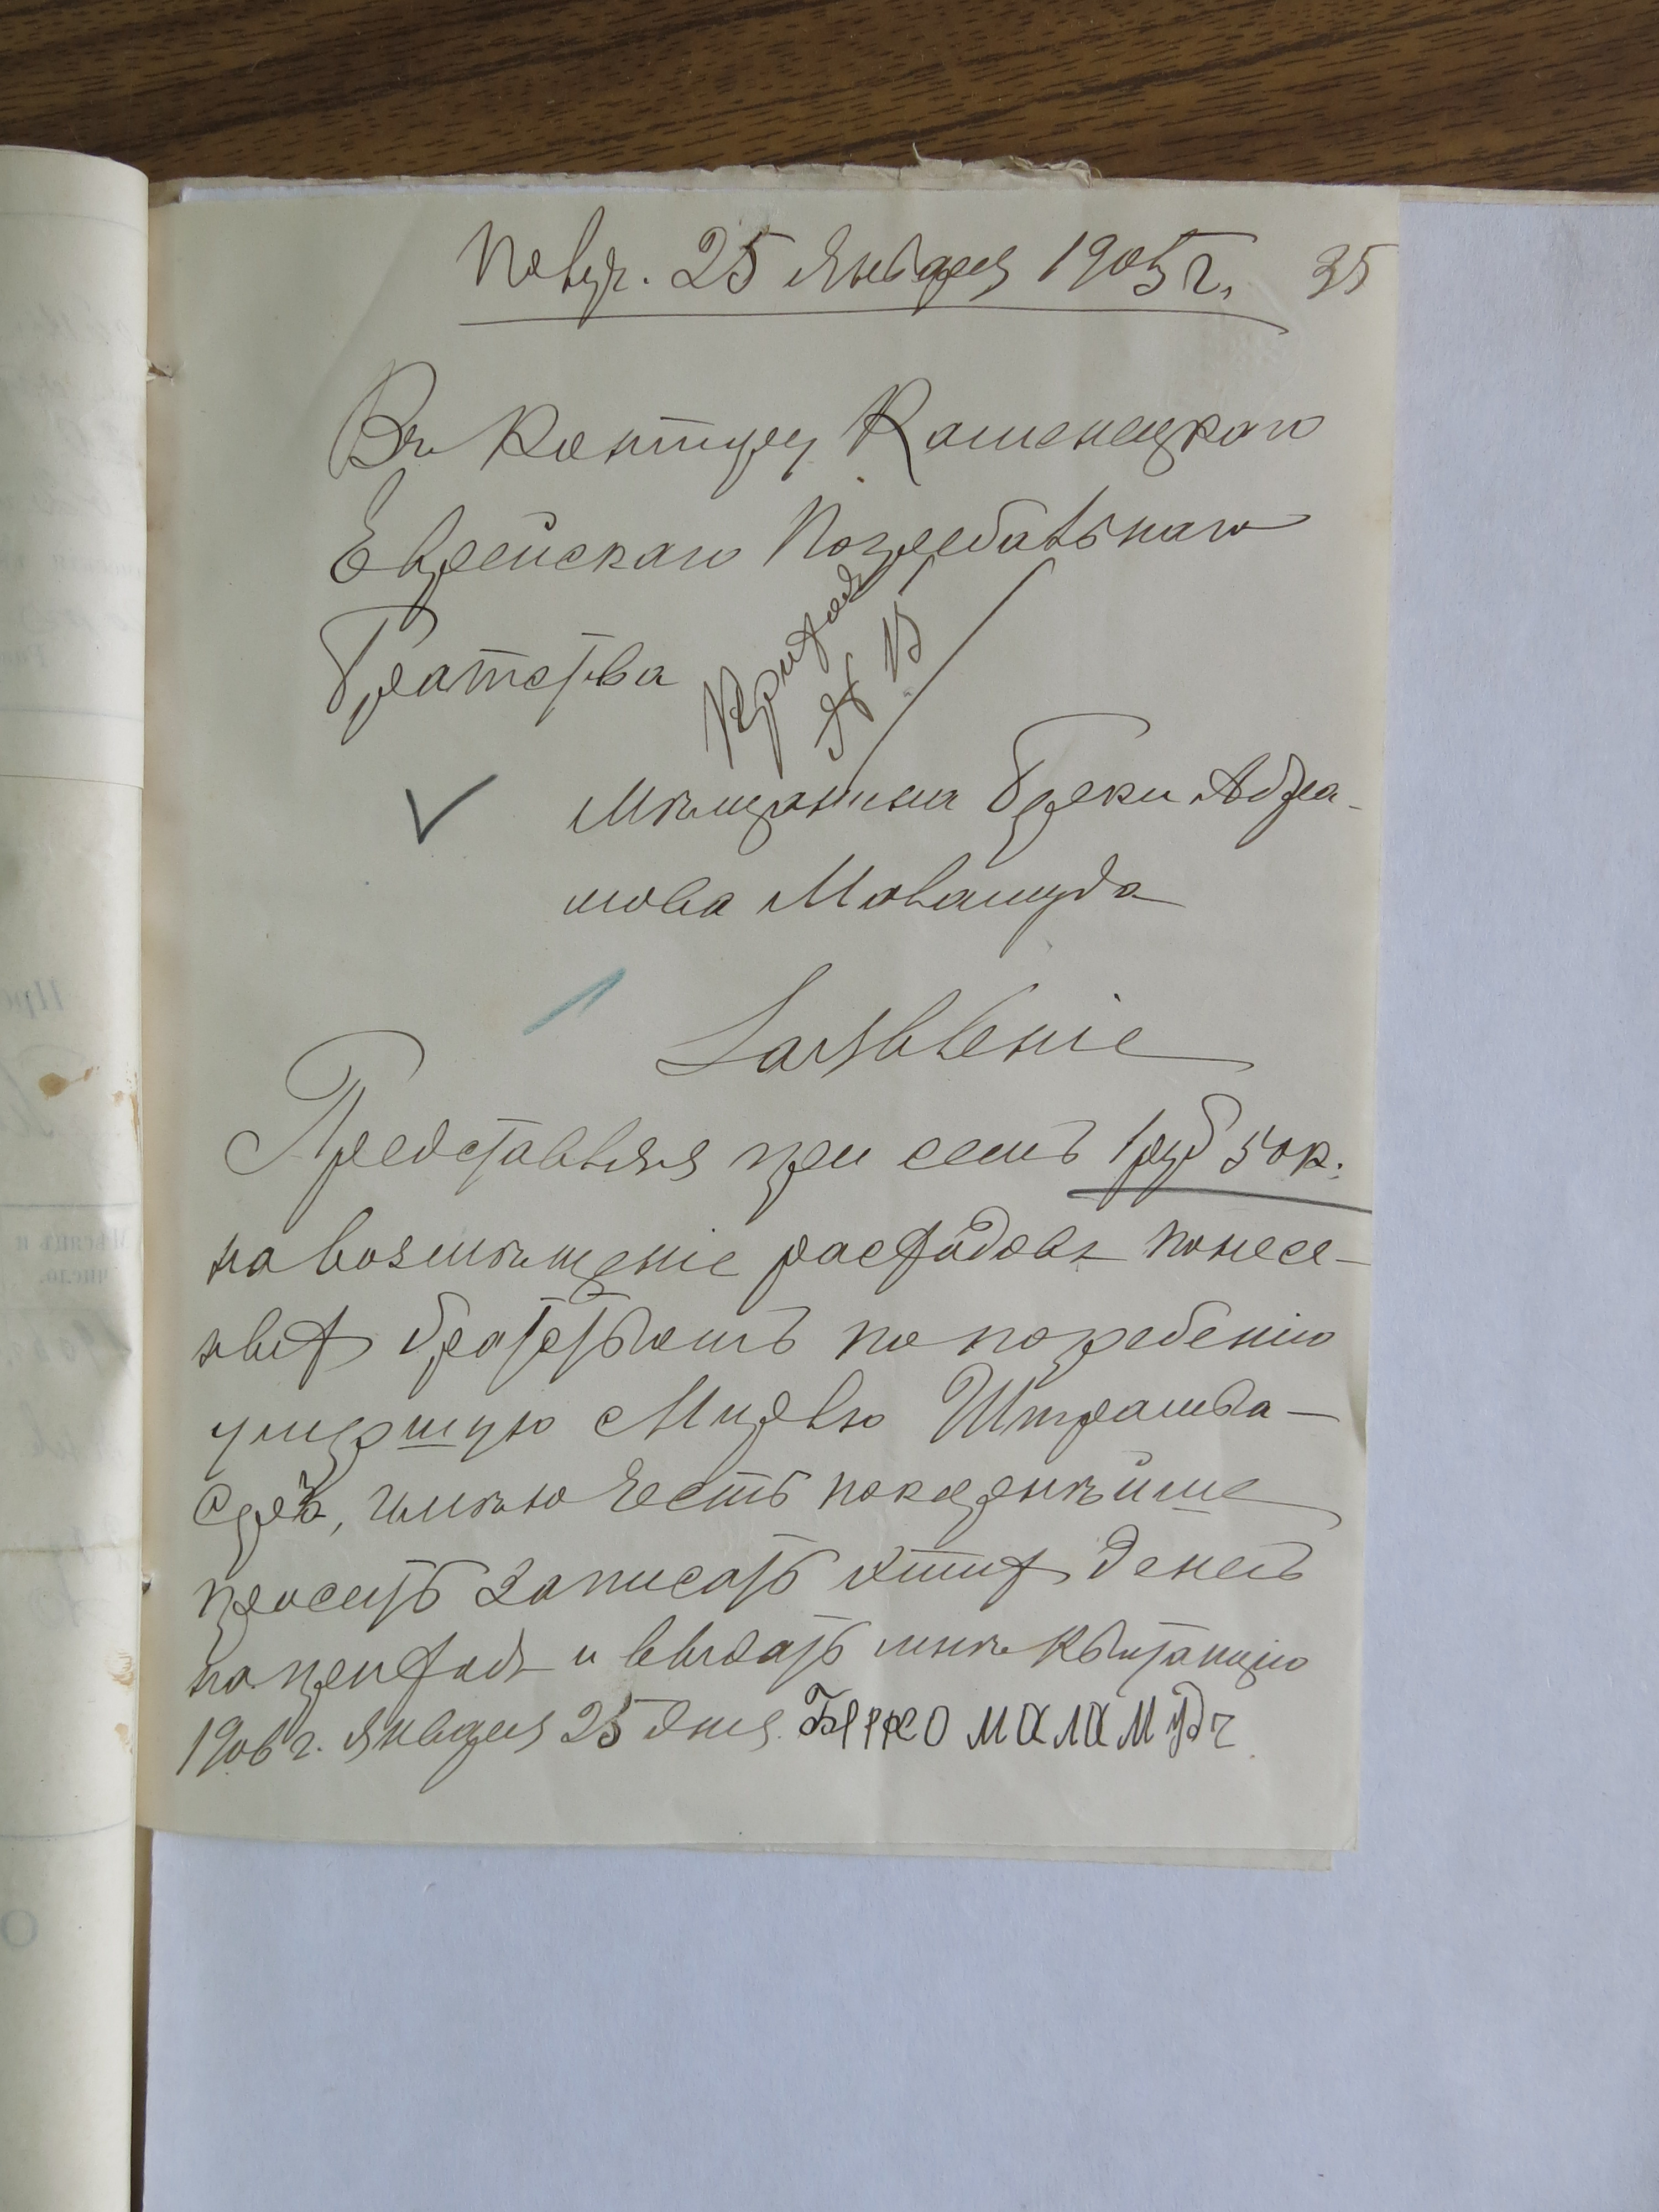 Получ. 25 Января 1905 г. 35
Въ Контору Каменецкаго
Еврейскаго Погребальнаго
Братства
Приход
№ 15
Мѣщанина Берки Абра-
мова Маламуда
Заявленіе
Представляя при семъ 1 руб 50 к.
на возмѣщеніе расходовъ понесе-
ных братствомъ по погребенію
умершую Мирлю Штрамва-
серъ, имѣю честь покорнѣйше
просить записать этих денегъ
на приходъ и выдать мнѣ квитанцію
1906 г. Января 25 дня. Берко Маламудъ
Мѣсяцъ и
число.